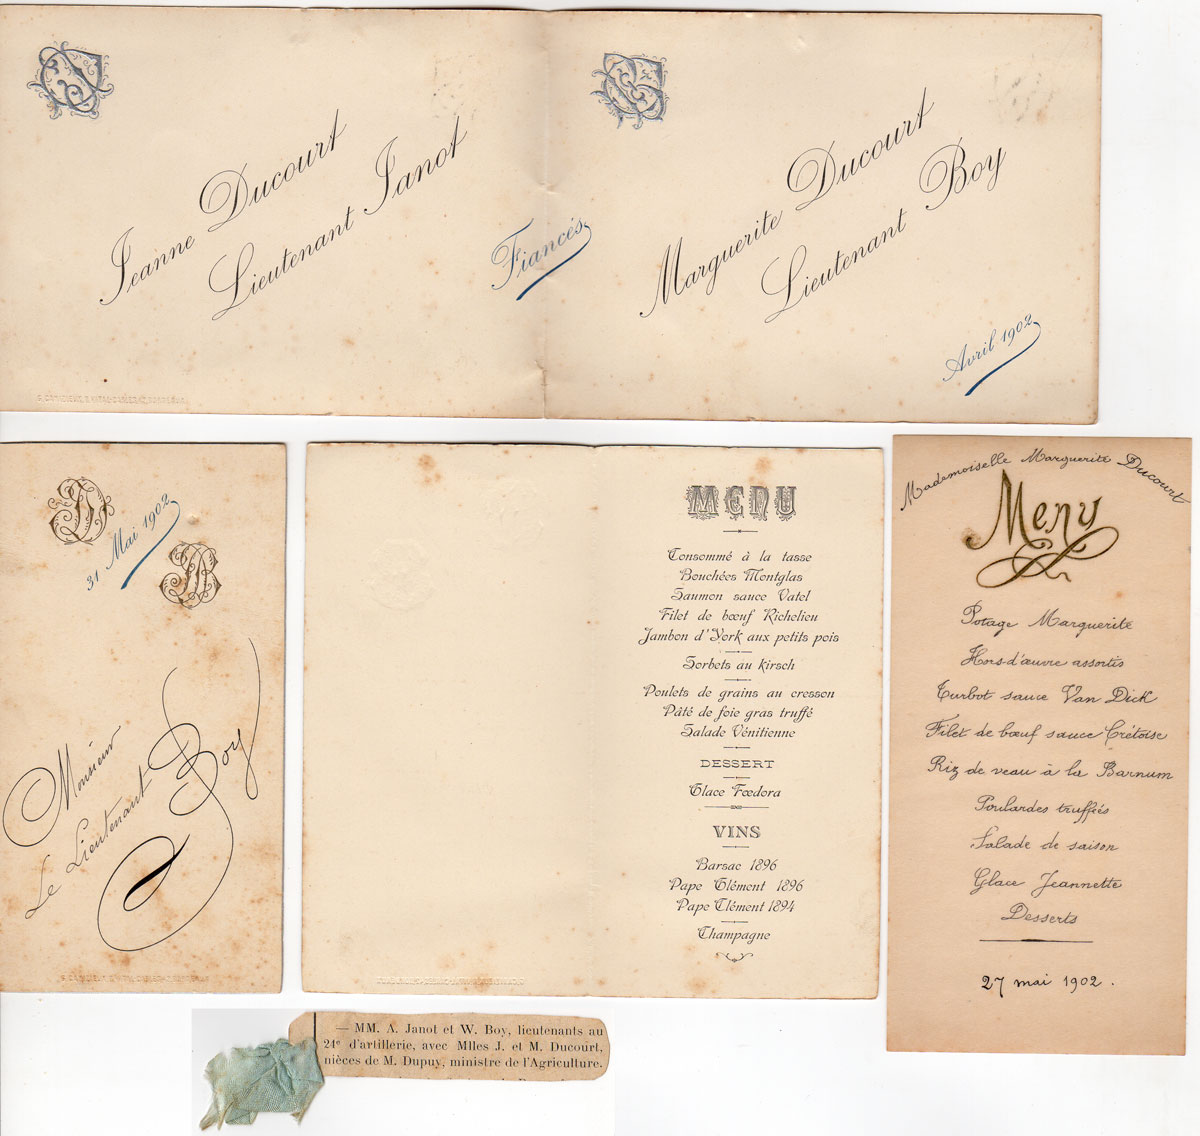 Jeanne Ducourt
Lieutenant Janot
Fiancés
Marguerite Ducourt
Lieutenant Boy
Avril 1902
31 Mai 1902
Monsieur
Le Lieutenant Boy
MENU
Consommé à la tasse
Bouchées Montglas
Saumon sauce Vatel
Filet de bœuf Richelieu
Jambon d'York aux petits pois
Sorbets au kirsch
Poulets de grains au cresson
Pâté de foie gras truffé
Salade Vénitienne
DESSERT
Glace Fœdora
VINS
Barsac 1896
Pape Clément 1896
Pape Clément 1894
Champagne
Mademoiselle Marguerite Ducourt
Menu
Potage Marguerite
Hors d'œuvre assortis
Turbot sauce Van Dick
Filet de bœuf sauce Crétoise
Riz de veau à la Barnum
Poulardes truffées
Salade de saison
Glace Jeannette
Desserts
27 mai 1902.
— MM. A. Janot et W. Boy, lieutenants au
24e d'artillerie, avec Mlles J. et M. Ducourt,
nièces de M. Dupuy, ministre de l'Agriculture.